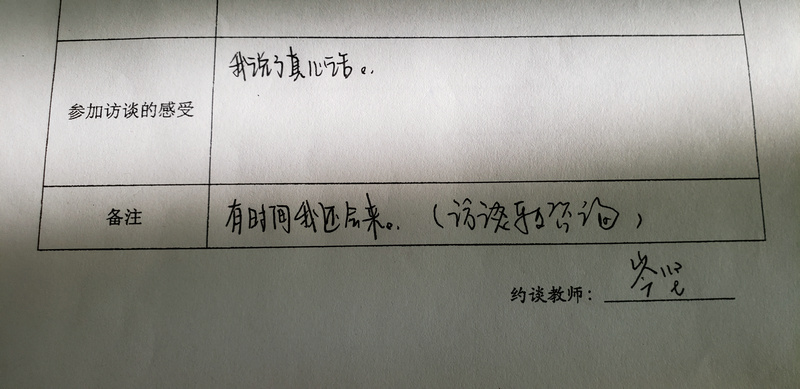 我说了真心话。
参加访谈的感受
备注
有时间我还会来。(访谈和咨询)
约谈教师：